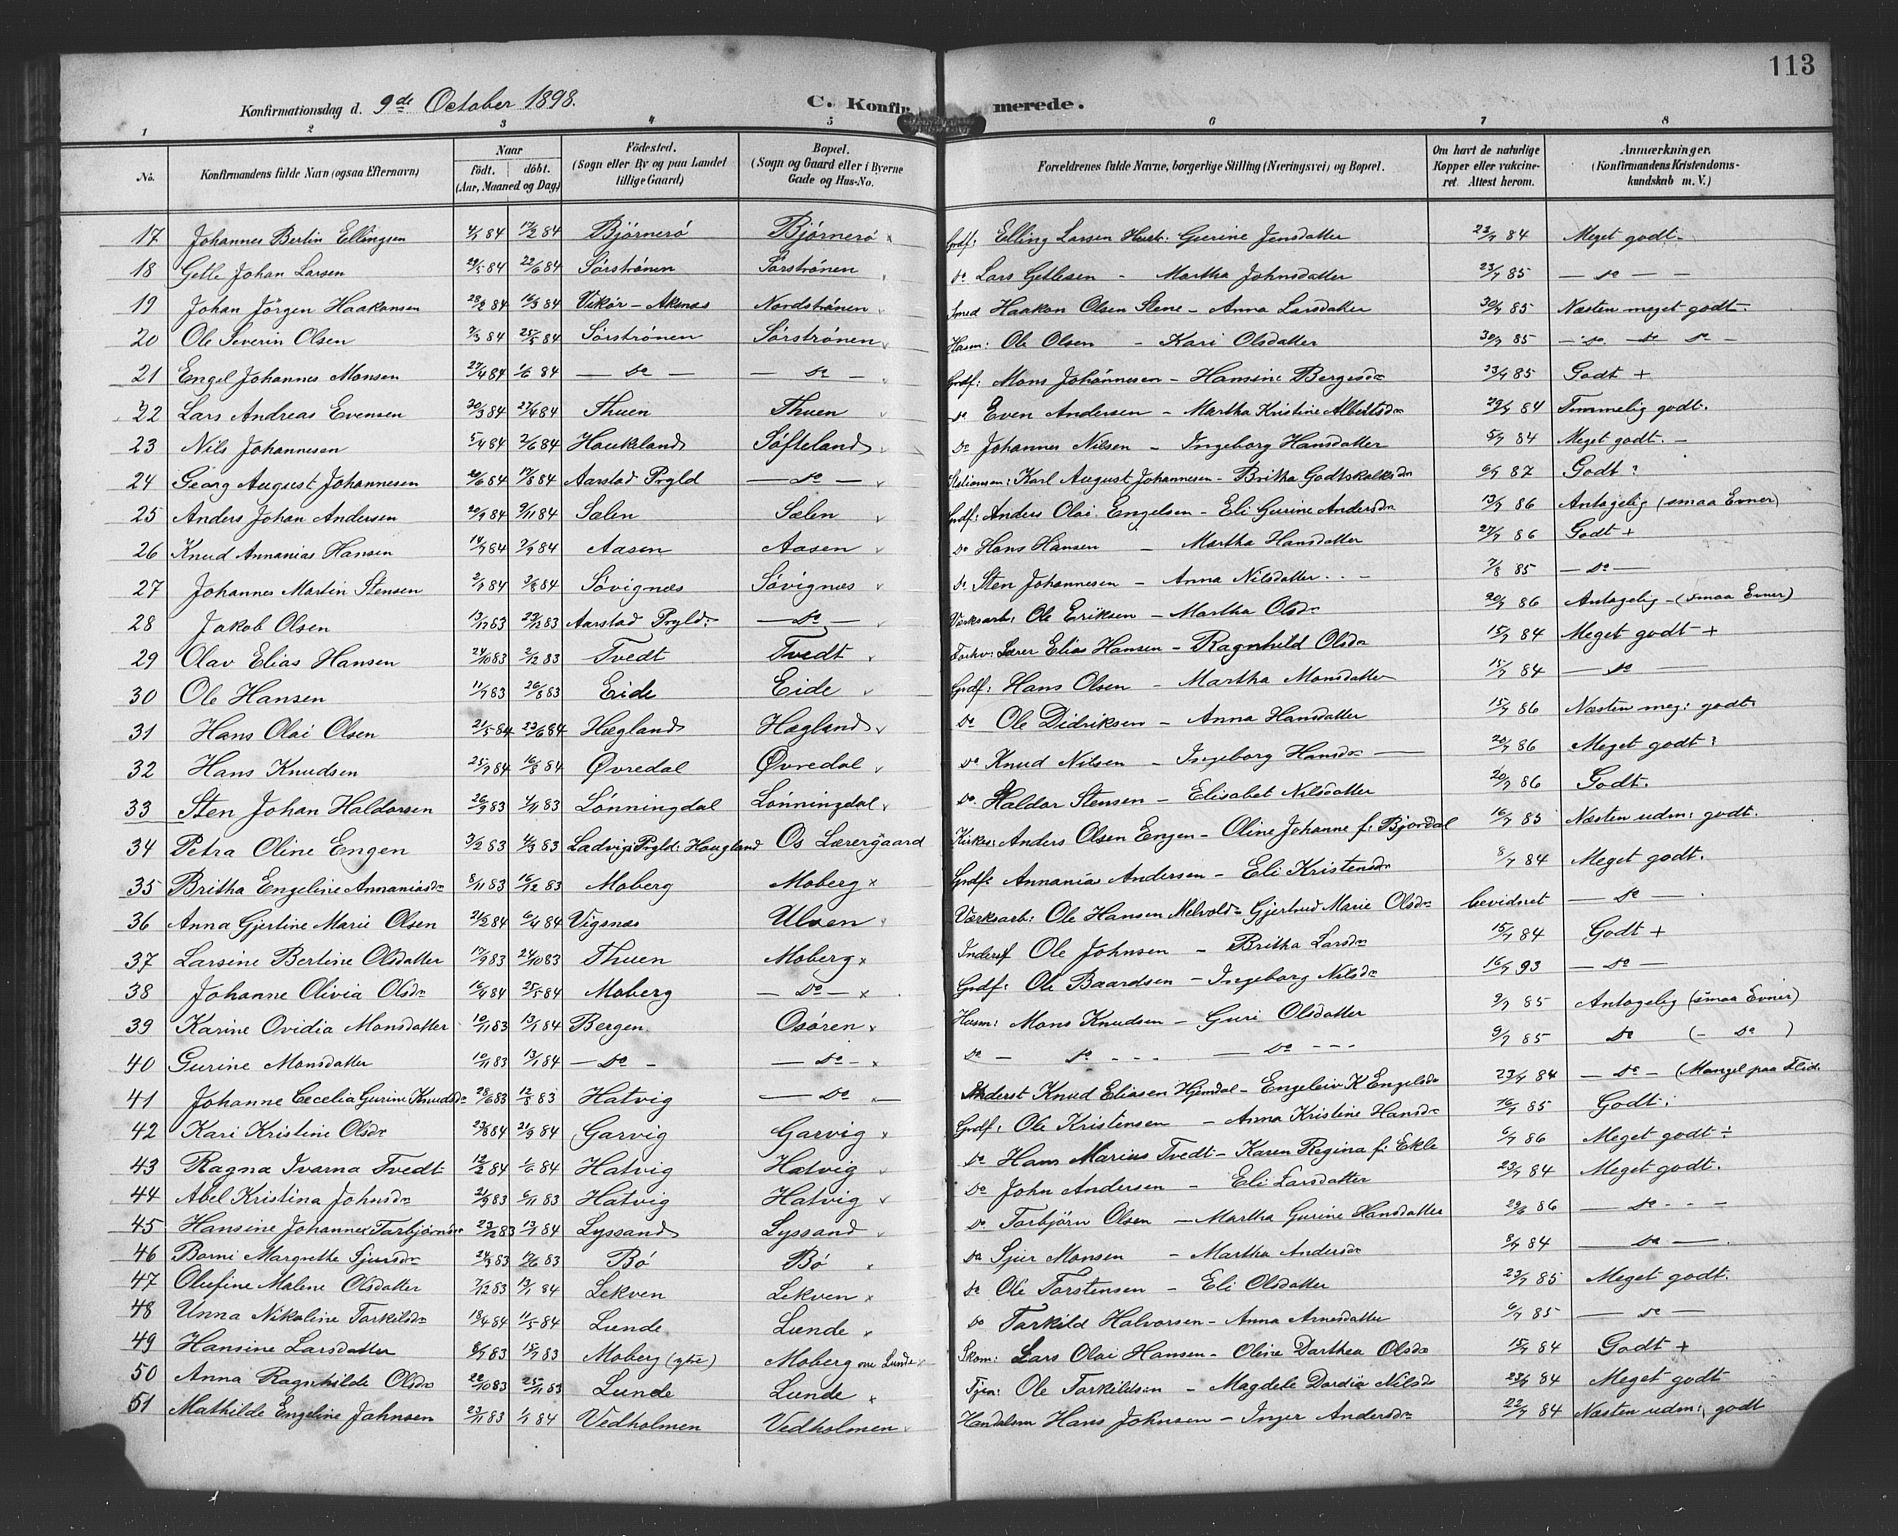 113
Konfirmationsdag d. 9de October 1898. C. Konfirmerede.
1 2 3 4 5 6 7 8
No. Konfirmandens fulde Navn (ogsaa Efternavn) Naar født. døbt. (Aar, Maaned og Dag) Fødested. (Sogn eller By og paa Landet tillige Gaard) Bopæl. (Sogn og Gaard eller i Byerne Gade og Hus-No. Forældrenes fulde Navne, borgerlige Stilling (Næringsvei) og Bopæl. Om havt de naturlige Kopper eller vakcineret. Attest herom. Anmærkninger. (Konfirmandens Kristendomskundskab m. V.)
17 Johannes Bertin Ellingsen 84 17/2 84 Bjørnerö Bjørnerö Grdf: Elling Larsen Hustr: Gurine Jensdatter 84 Meget godt.
18 Getle Johan Larsen 29/5 84 22/6 84 Sørstrønen Sørstrønen do Lars Getlesen - Martha Johnsdatter 85 — do —
19 Johan Jörgen Haakonsen 28/2 84 16/3 84 Vikör - Aksnæs Nordstrønen Smed Haakon Olsen Stene - Anna Larsdatter 85 Næsten meget godt.
20 Ole Severin Olsen 84 25/5 84 Sørstrønen Sørstrønen Husm: Ole Olsen - Kari Olsdatter 85 — do — do — do —
21 Engel Johannes Monsen 27/4 84 1/6 84 — do — — do — Grdf: Mons Johannesen - Hansine Bergesdr 85 Godt +
22 Lars Andreas Evensen 20/3 84 27/4 84 Thuen Thuen do Even Andersen - Martha Kristine Albertsdr 84 Temmelig godt.
23 Nils Johannesen 5/4 84 2/6 84 Haukland Søfteland do Johannes Nilsen - Ingeborg Hansdatter 84 Meget godt. -
24 Georg August Johannesen 84 84 Aarstad Prgld — do — Karl August Johannesen - Britha Godtskalksdr 87 Godt
25 Anders Johan Andersen 84 9/11 84 Sælen Sælen Grdf: Anders Olai Engelsen - Eli Gurine Andersdr 86 Antagelig (smaa Evner)
26 Knud Annanias Hansen 84 84 Aasen Aasen do Hans Hansen - Martha Hansdatter 86 Godt +
27 Johannes Martin Stensen 84 84 Søvignæs Søvignæs do Sten Johannesen - Anna Nilsdatter 85 — do —
28 Jakob Olsen 13/12 83 83 Aarstad Prgld. — do — Værksarb: Ole Eriksen - Martha Olsdr 86 Antagelig - (smaa Evner)
29 Olav Elias Hansen 24/10 83 2/12 83 Tvedt Tvedt Lærer Elias Hansen - Ragnhild Olsdr 84 Meget godt +
30 Ole Hansen 83 26/8 83 Eide Eide Grdf: Hans Olsen - Martha Monsdatter 84 — do —
31 Hans Olai Olsen 21/5 84 22/6 84 Hægland Hægland do Ole Didriksen - Anna Hansdatter 86 Næsten meg: godt
32 Hans Knudsen 84 84 Øvredal Øvredal do Knud Nilsen - Ingeborg Hansdr 86 Meget godt
33 Sten Johan Haldorsen 26/9 83 4/11 83 Lønningdal Lønningdal do Haldor Stensen - Elisabet Nilsdatter 86 Godt.
34 Petra Oline Engen 3/2 83 4/3 83 Ladvigs Prgld: Haugland Os Lærergaard Kirkes: Anders Olsen Engen - Oline Johanne f. Bjordal 85 Næsten udm: godt.
35 Britha Engeline Annaniasdr 8/11 83 16/12 83 Moberg Moberg Grdf: Annanias Andersen - Eli Kristensdr 84 Meget godt.
36 Anna Gjertine Marie Olsen 21/2 84 6/4 84 Vigsnæs Ulven Værksarb: Ole Hansen Melvold - Gjertrud Marie Olsdr bevidnet — do —
37 Larsine Bertine Olsdatter 17/9 83 21/10 83 Thuen Moberg Inderst Ole Johnsen - Britha Larsdr 84 Godt +
38 Johanne Olivia Olsdr 16/4 84 25/5 84 Moberg — do — Grdf: Ole Baardsen - Ingeborg Nilsdr 93 — do —
39 Karine Ovidia Monsdatter 10/11 83 13/1 84 Bergen Osören Husm: Mons Knudsen - Guri Olsdatter 85 Antagelig (smaa Evner)
40 Gurine Monsdatter 10/11 83 13/1 84 — do — — do — do — do — do 85 do (- do )
41 Johanne Cecelia Gurine Knudsdr 28/6 83 12/8 83 Hatvig — do — Inderst Knud Eliasen Hjemdal - Engeleiv K Engelsdr 84 — do — (Mangel paa Flid.
42 Kari Kristine Olsdr 84 21/9 84 Garvig Garvig Grdf: Ole Kristensen - Anna Kristine Hansdr 85 Godt
43 Ragna Ivarna Tvedt 12/2 84 1/6 84 Hatvig Hatvig do Hans Marius Tvedt - Karen Regina f. Ekle 86 Meget godt
44 Abel Kristina Johnsdr 21/9 83 6/11 83 Hatvig Hatvig do John Andersen - Eli Larsdatter 84 Meget godt.
45 Hansine Johannes Torbjörnsdr 83 13/1 84 Lyssand Lyssand do Torbjörn Olsen - Martha Gurine Hansdatter 86 — do —
46 Borni Margrethe Sjursdr 83 83 Bö Bö do Sjur Monsen - Martha Andersdr 84 — do —
47 Olufine Malene Olsdatter 7/12 83 13/1 84 Lekven Lekven do Ole Torstensen - Eli Olsdatter 85 Meget godt.
48 Unna Nikoline Torkildsdr 18/4 84 11/5 84 Lunde Lunde do Torkild Halvorsen - Anna Arnesdatter 85 — do —
49 Hansine Larsdatter 83 83 Moberg (ytre) Moberg nu Lunde Skom: Lars Olai Hansen - Oline Dorthea Olsdr 84 Godt +
50 Anna Ragnhilde Olsdr 22/10 83 25/11 83 Lunde Lunde Tjen: Ole Torkildsen - Magdele Dordia Nilsdr 84 Meget godt
51 Mathilde Engeline Johnsen 23/11 83 1/1 84 Vedholmen Vedholmen Handelsm Hans Johnsen - Inger Andersdr 84 Næsten udm: godt